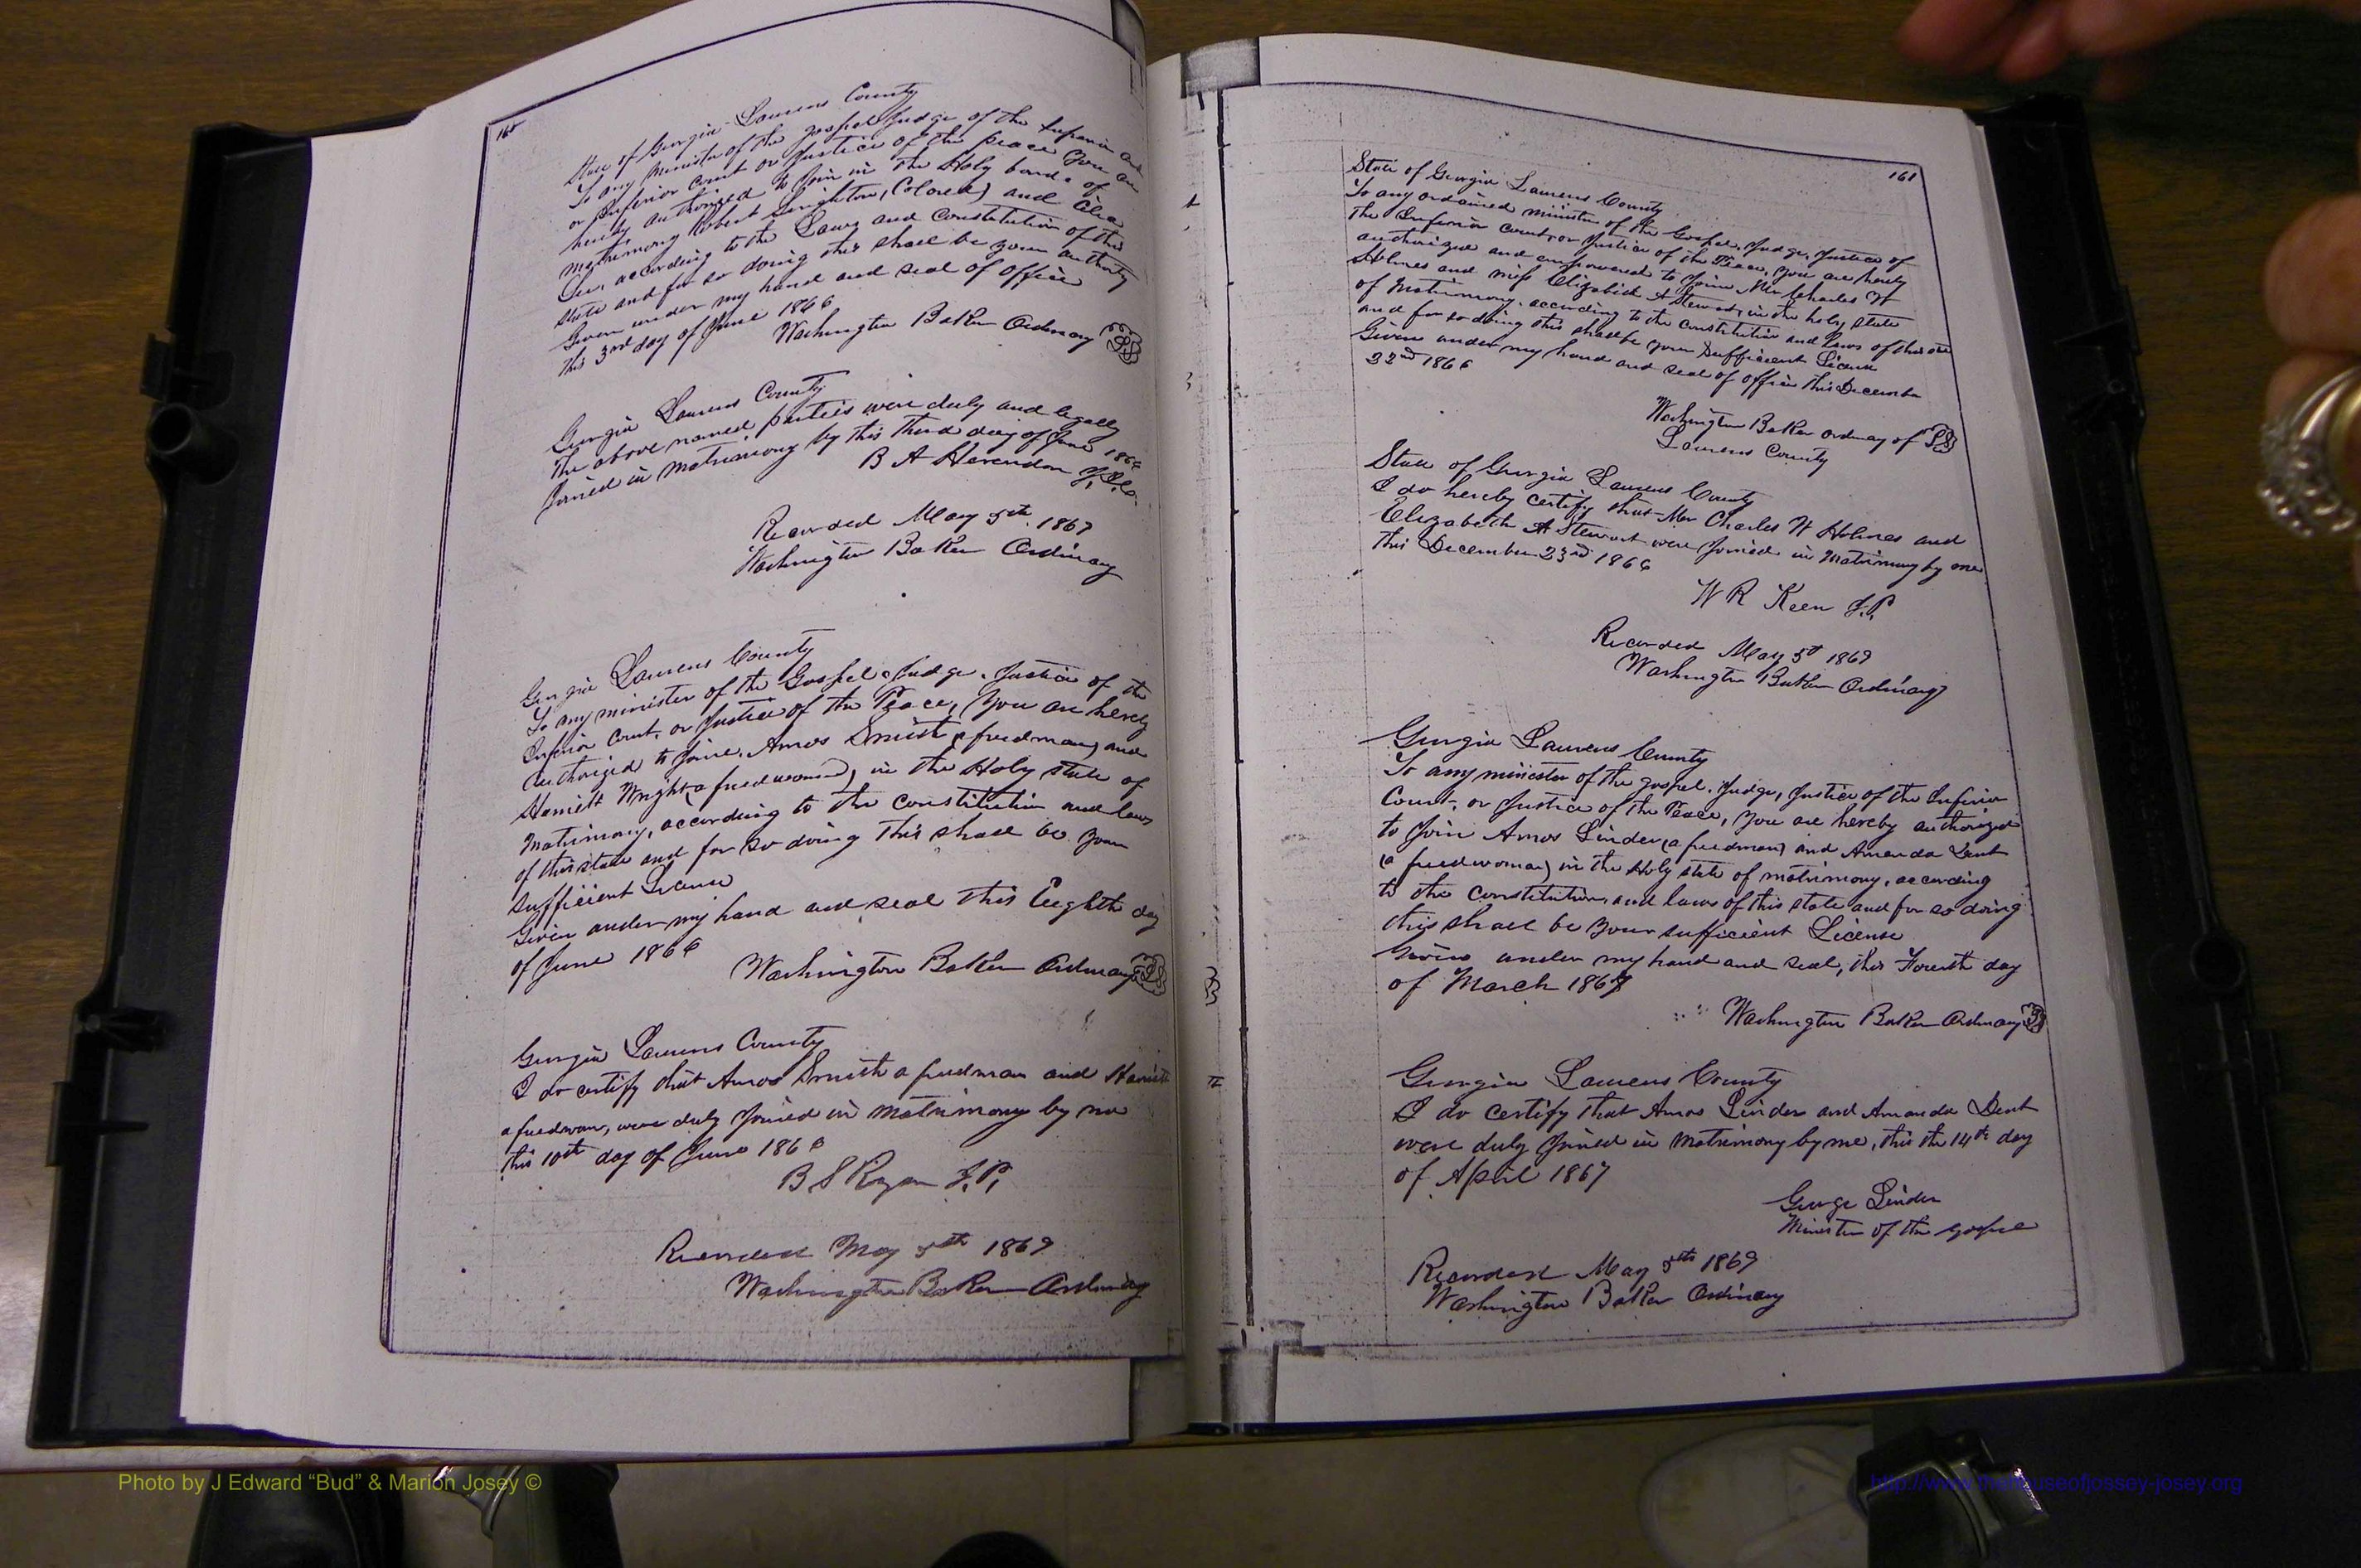 State of Georgia Laurens County
To any minister of the gospel Judge of the Superior
or Inferior Court or Justice of the peace You are
hereby authorized to Join in the Holy bonds of
matrimony Robert (Colored) and
according to the Laws and constitution of this
State and for so doing this shall be your authority
Given under my hand and seal of office
this 3rd day of June 1866
Washington Baker Ordinary LS
Georgia Laurens County
The above named parties were duly and legally
Joined in matrimony by this third day of June 1866
B A Herendon
Recorded May 5th 1869
Washington Baker Ordinary
Georgia Laurens County
To any minister of the Gospel, Judge, Justice of the
Inferior Court, or Justice of the Peace, You are hereby
authorized to Joine, Amos Smith (a freedman) and
Harriett Wright (a freedwoman), in the Holy state of
Matrimony, according to the constitution and laws
of this state and for so doing this shall be your
sufficient License
Given under my hand and seal this Eighth day
of June 1866
Washington Baker Ordinary LS
Georgia Laurens County
I do certify that Amos Smith a freedman and Harriett
a freedwoman, were duly Joined in matrimony by me
this 10th day of June 1866
B S Ryan J.P.
Recorded May 5th 1869
Washington Baker Ordinary
161
State of Georgia Laurens County
To any ordained minister of the Gospel, Judge, Justice of
the Inferior court, or Justice of the Peace, you are hereby
authorized and empowered to Joine, Mr Charles W
Holmes and miss Elizabeth A Stewart, in the holy state
of Matrimony, according to the constitution and Laws of this state
and for so doing this shall be your sufficient License
Given under my hand and seal of office this December
22nd 1866
Washington Baker ordinary of LS
Laurens County
State of Georgia Laurens County
I do hereby certify that Mr Charles W Holmes and
Elizabeth A Stewart were Joined in Matrimony by me
this December 23rd 1866
W R Keen J.P.
Recorded May 5th 1869
Washington Baker Ordinary
Georgia Laurens County
To any minister of the gospel, Judge, Justice of the Inferior
Court, or Justice of the Peace, You are hereby authorized
to Join Amos Linder (a freedman) and Amanda Dent
(a freedwoman) in the Holy state of matrimony, according
to the Constitution, and laws of this state and for so doing
this shall be your sufficient License
Given under my hand and seal, this Fourth day
of March 1867
Washington Baker Ordinary LS
Georgia Laurens County
I do certify that Amos Linder and Amanda Dent
were duly Joined in matrimony by me, this the 14th day
of April 1867
George Linder
Minister of the gospel
Recorded May 5th 1869
Washington Baker Ordinary
Photo by J Edward “Bud” & Marion Josey ©
http://www.thehouseofjossey-josey.org